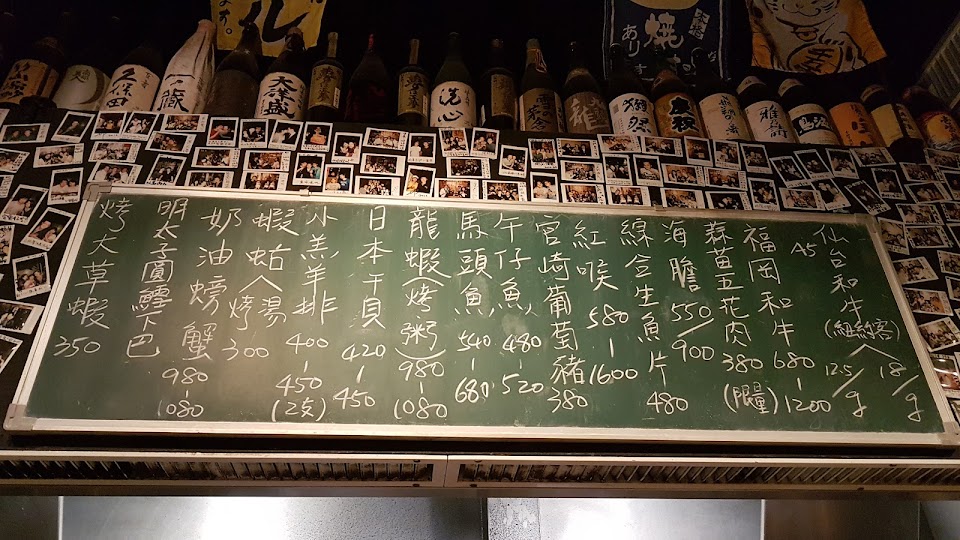 久保田
大洋盛
洗心
獺祭
仙台和牛(紐約客) A5 12.5/g 18/g
福岡和牛 680-1200
蒜苗五花肉 380 (限量)
海膽 550/900
綜合生魚片 480
紅喉 580-1600
宮崎葡萄豬 380
午仔魚 480-520
馬頭魚 540-680
龍蝦(烤、粥) 980-1080
日本干貝 420-450
小羔羊排 400-450 (2支)
蝦蛄 湯 烤 300
奶油螃蟹 980-1080
明太子圓鱈下巴
烤大草蝦 350